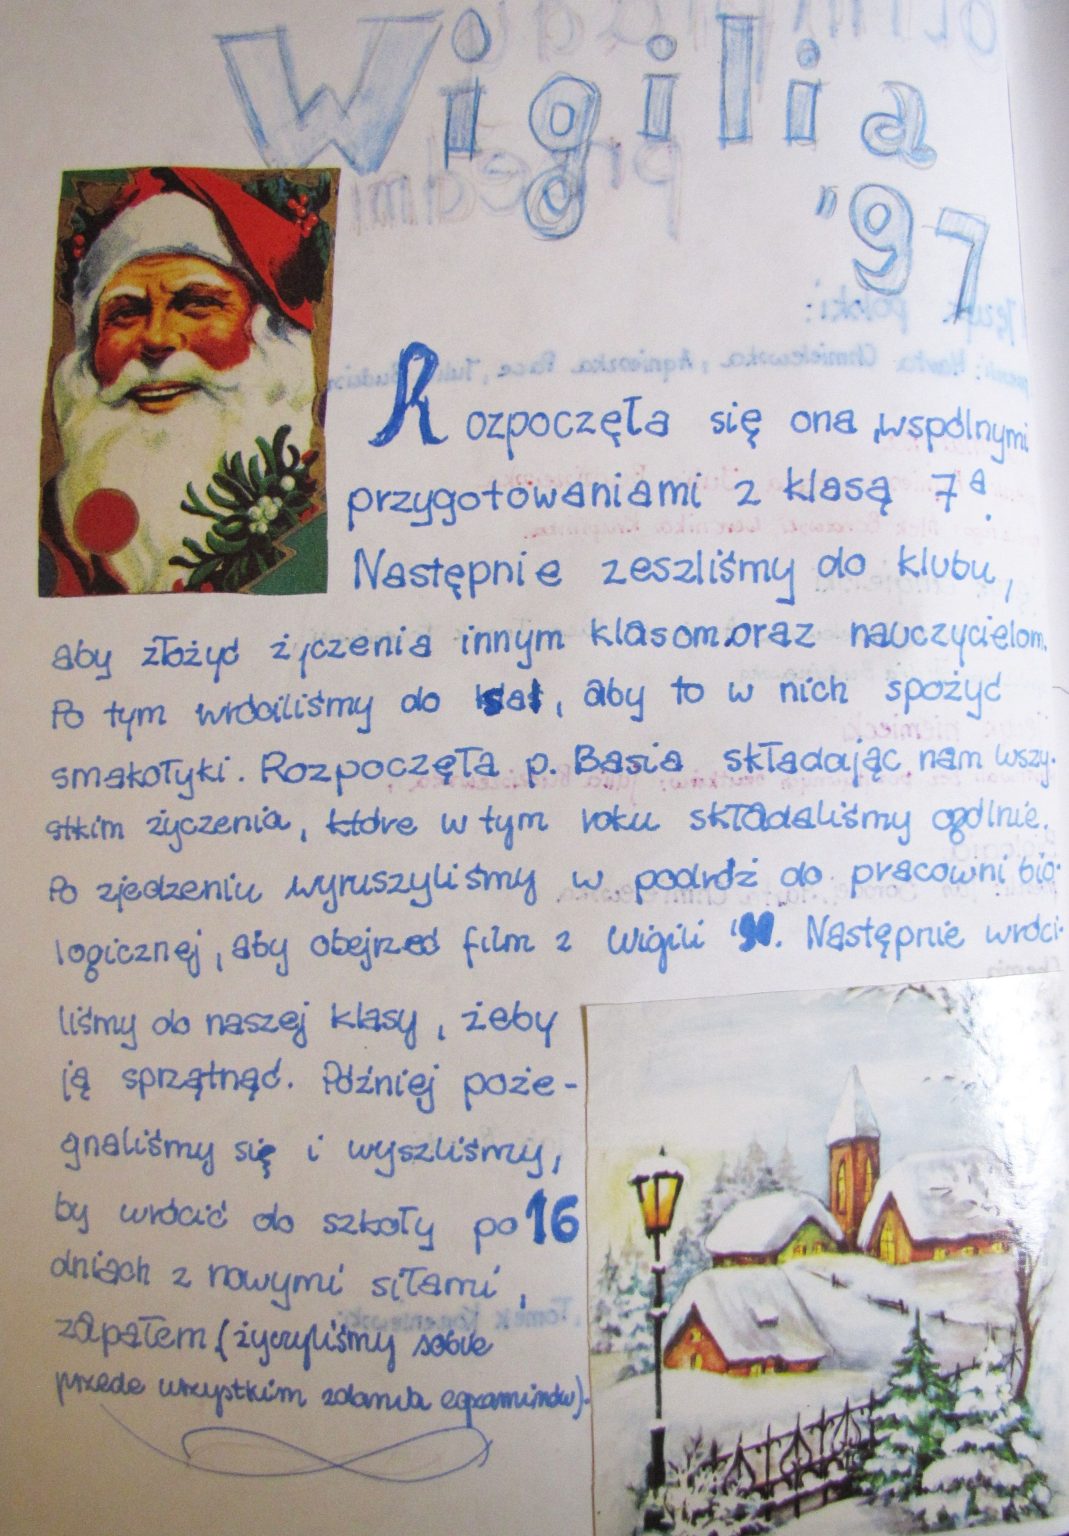 Wigilia
'97
Rozpoczęła się ona wspólnymi
przygotowaniami z klasą 7a.
Następnie zeszliśmy do klubu,
aby złożyć życzenia innym klasom oraz nauczycielom.
Po tym wróciliśmy do sal, aby to w nich spożyć
smakołyki. Rozpoczęła p. Basia składając nam wszy-
stkim życzenia, które w tym roku składaliśmy ogólnie.
Po zjedzeniu wyruszyliśmy w podróż do pracowni bio-
logicznej, aby obejrzeć film z Wigili '90. Następnie wróci-
liśmy do naszej klasy, żeby
ją sprzątnąć. Później poże-
gnaliśmy się i wyszliśmy,
by wrócić do szkoły po 16
dniach z nowymi siłami,
zapałem (życzyliśmy sobie
przede wszystkim zdania egzaminów).